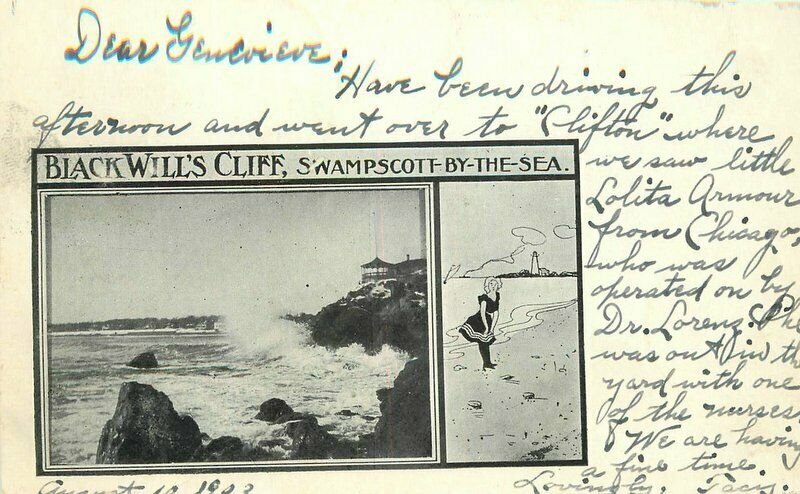 Dear Genevieve;
Have been driving this
afternoon and went over to "Clifton" where
we saw little
Lolita Armour
from Chicago,
who was
operated on by
Dr. Lorenz. She
was out in the
yard with one
of the nurses.
We are having
a fine time.
Lovingly,
BLACK WILL'S CLIFF, SWAMPSCOTT-BY-THE-SEA.
August